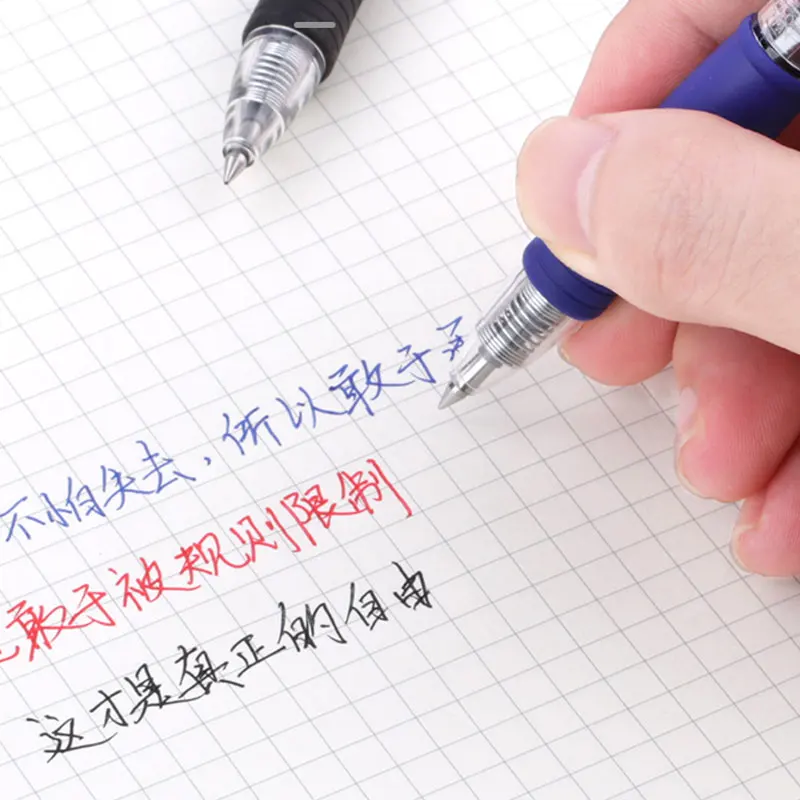 不怕失去,所以敢于
敢于被规则限制
这才是真正的自由